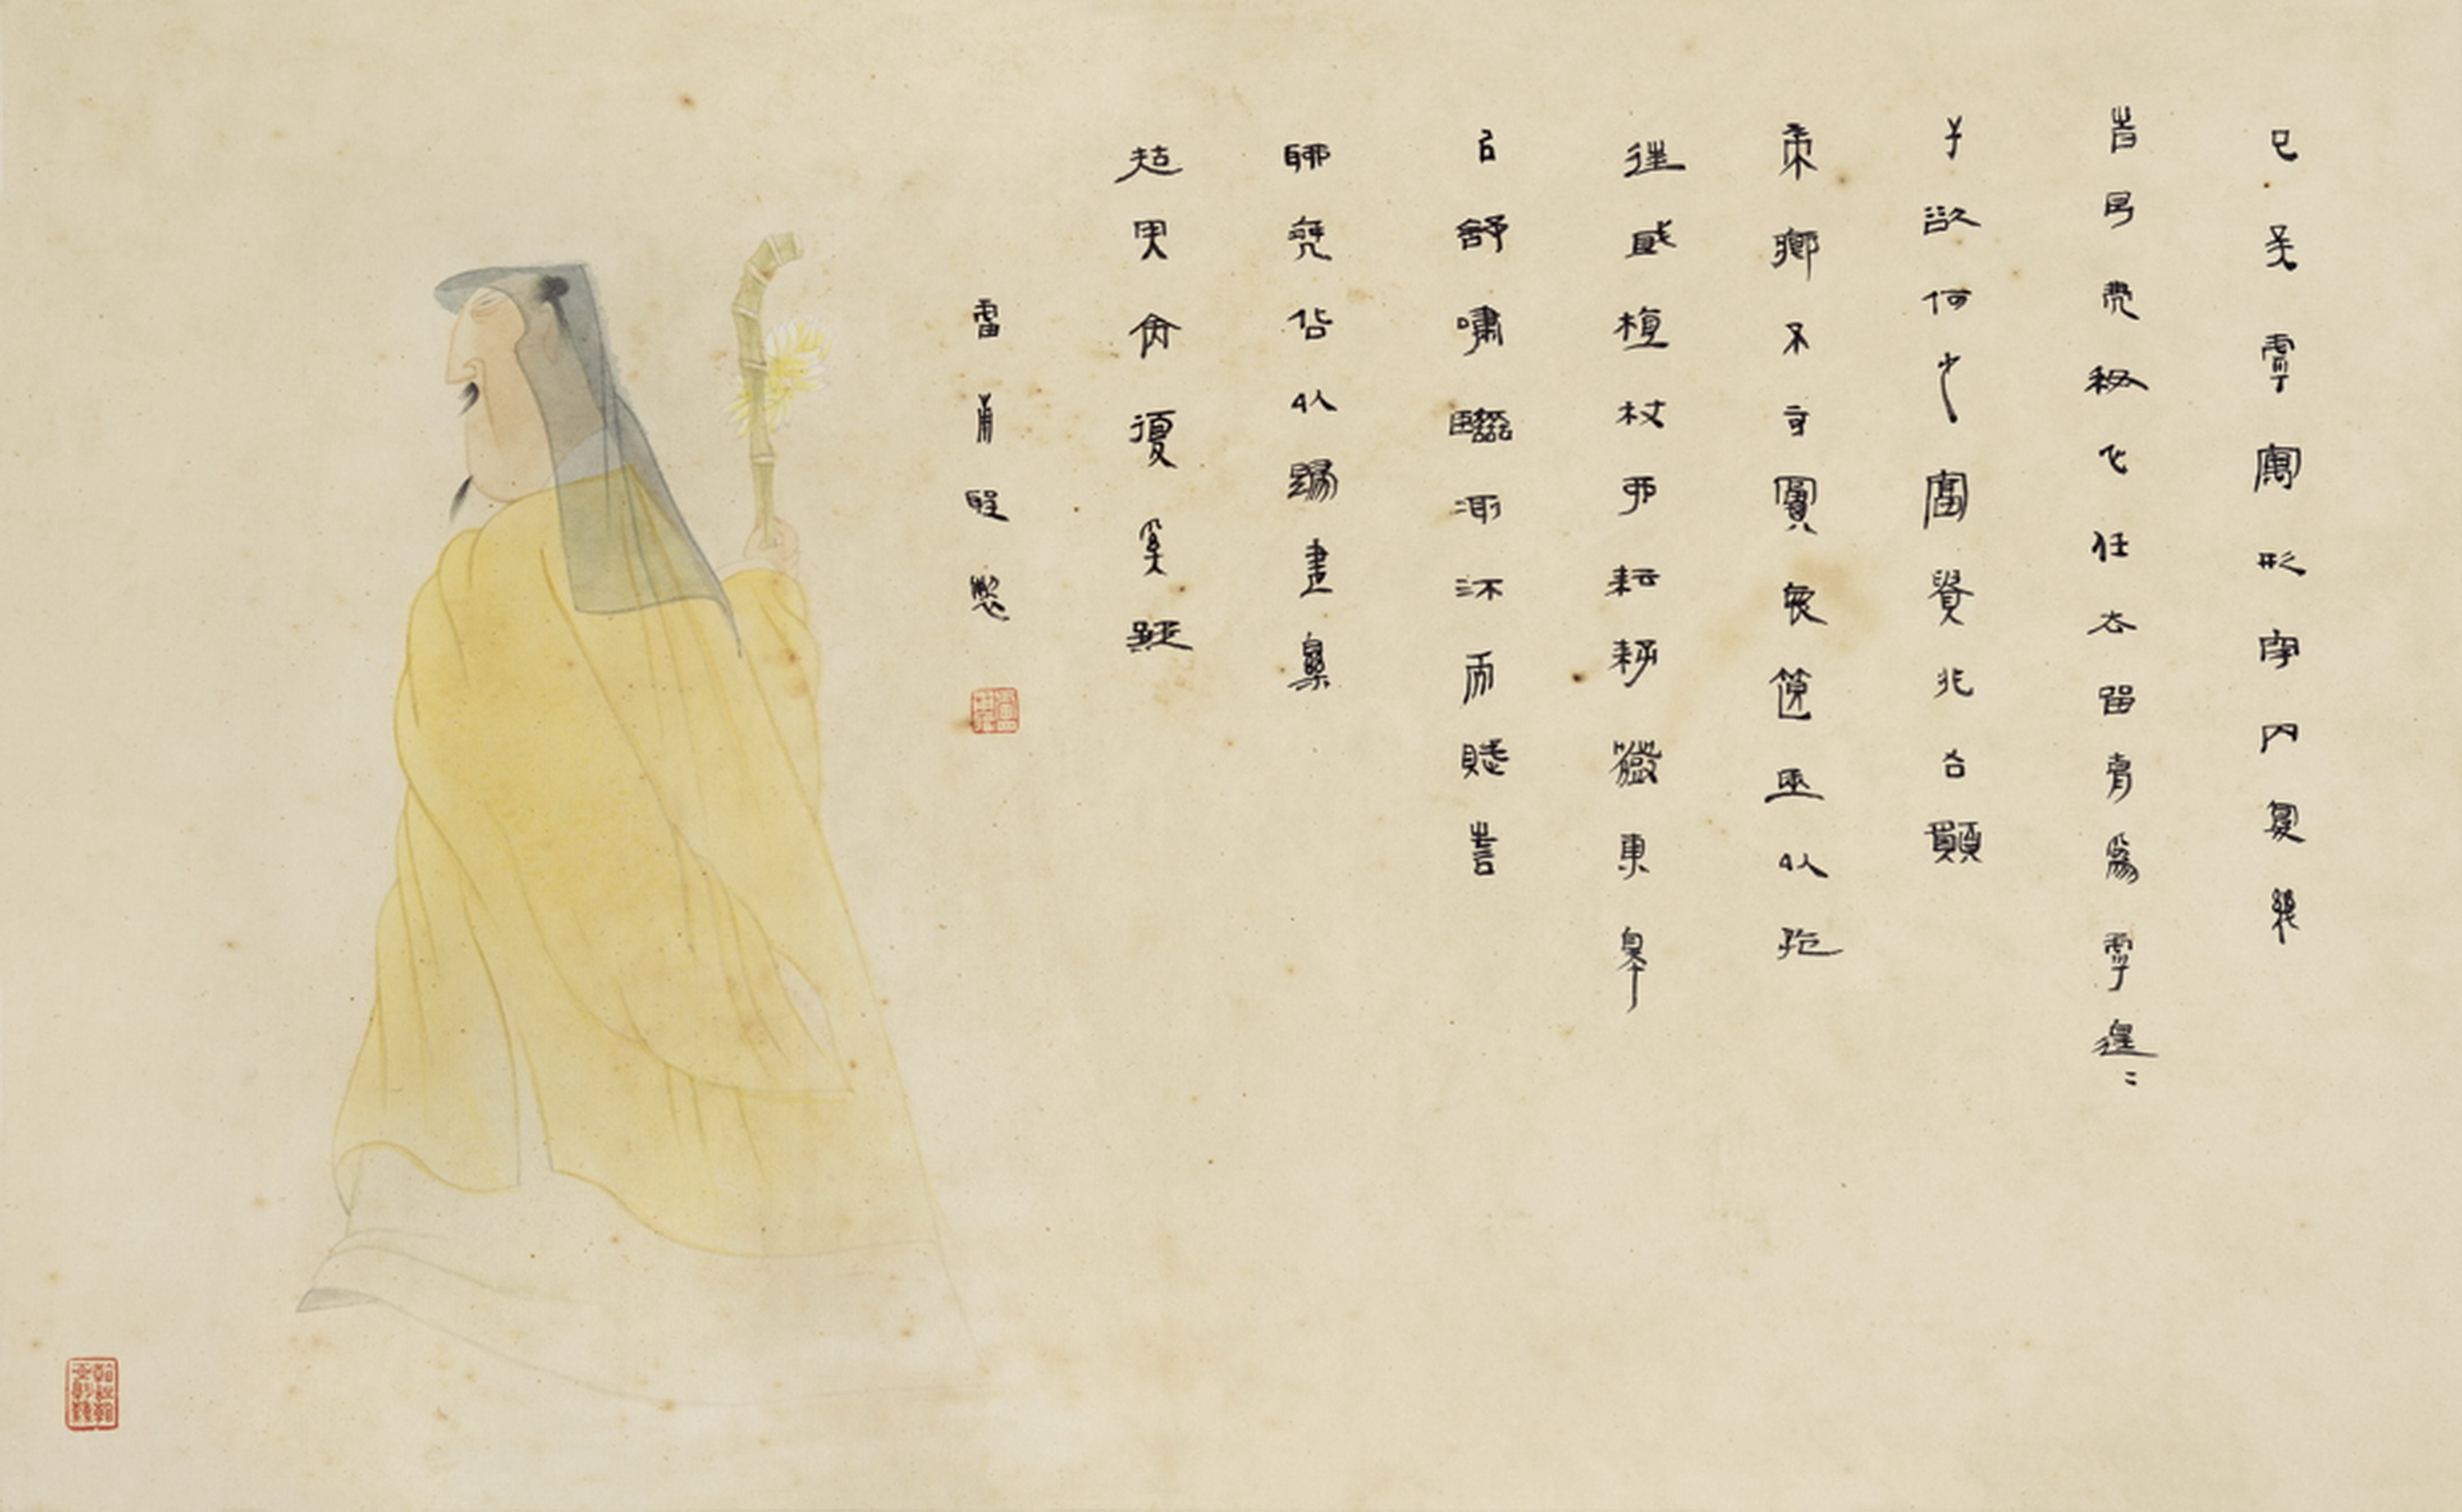 已矣虖寓形宇内復幾
時曷不委心任去留胡為虖遑遑
欲何之富貴非吾願
帝鄉不可期懷良辰以孤
往或植杖而耘耔登東皋
以舒嘯臨清流而賦詩
聊乘化以歸盡樂
天命復奚疑
盧甫聖製